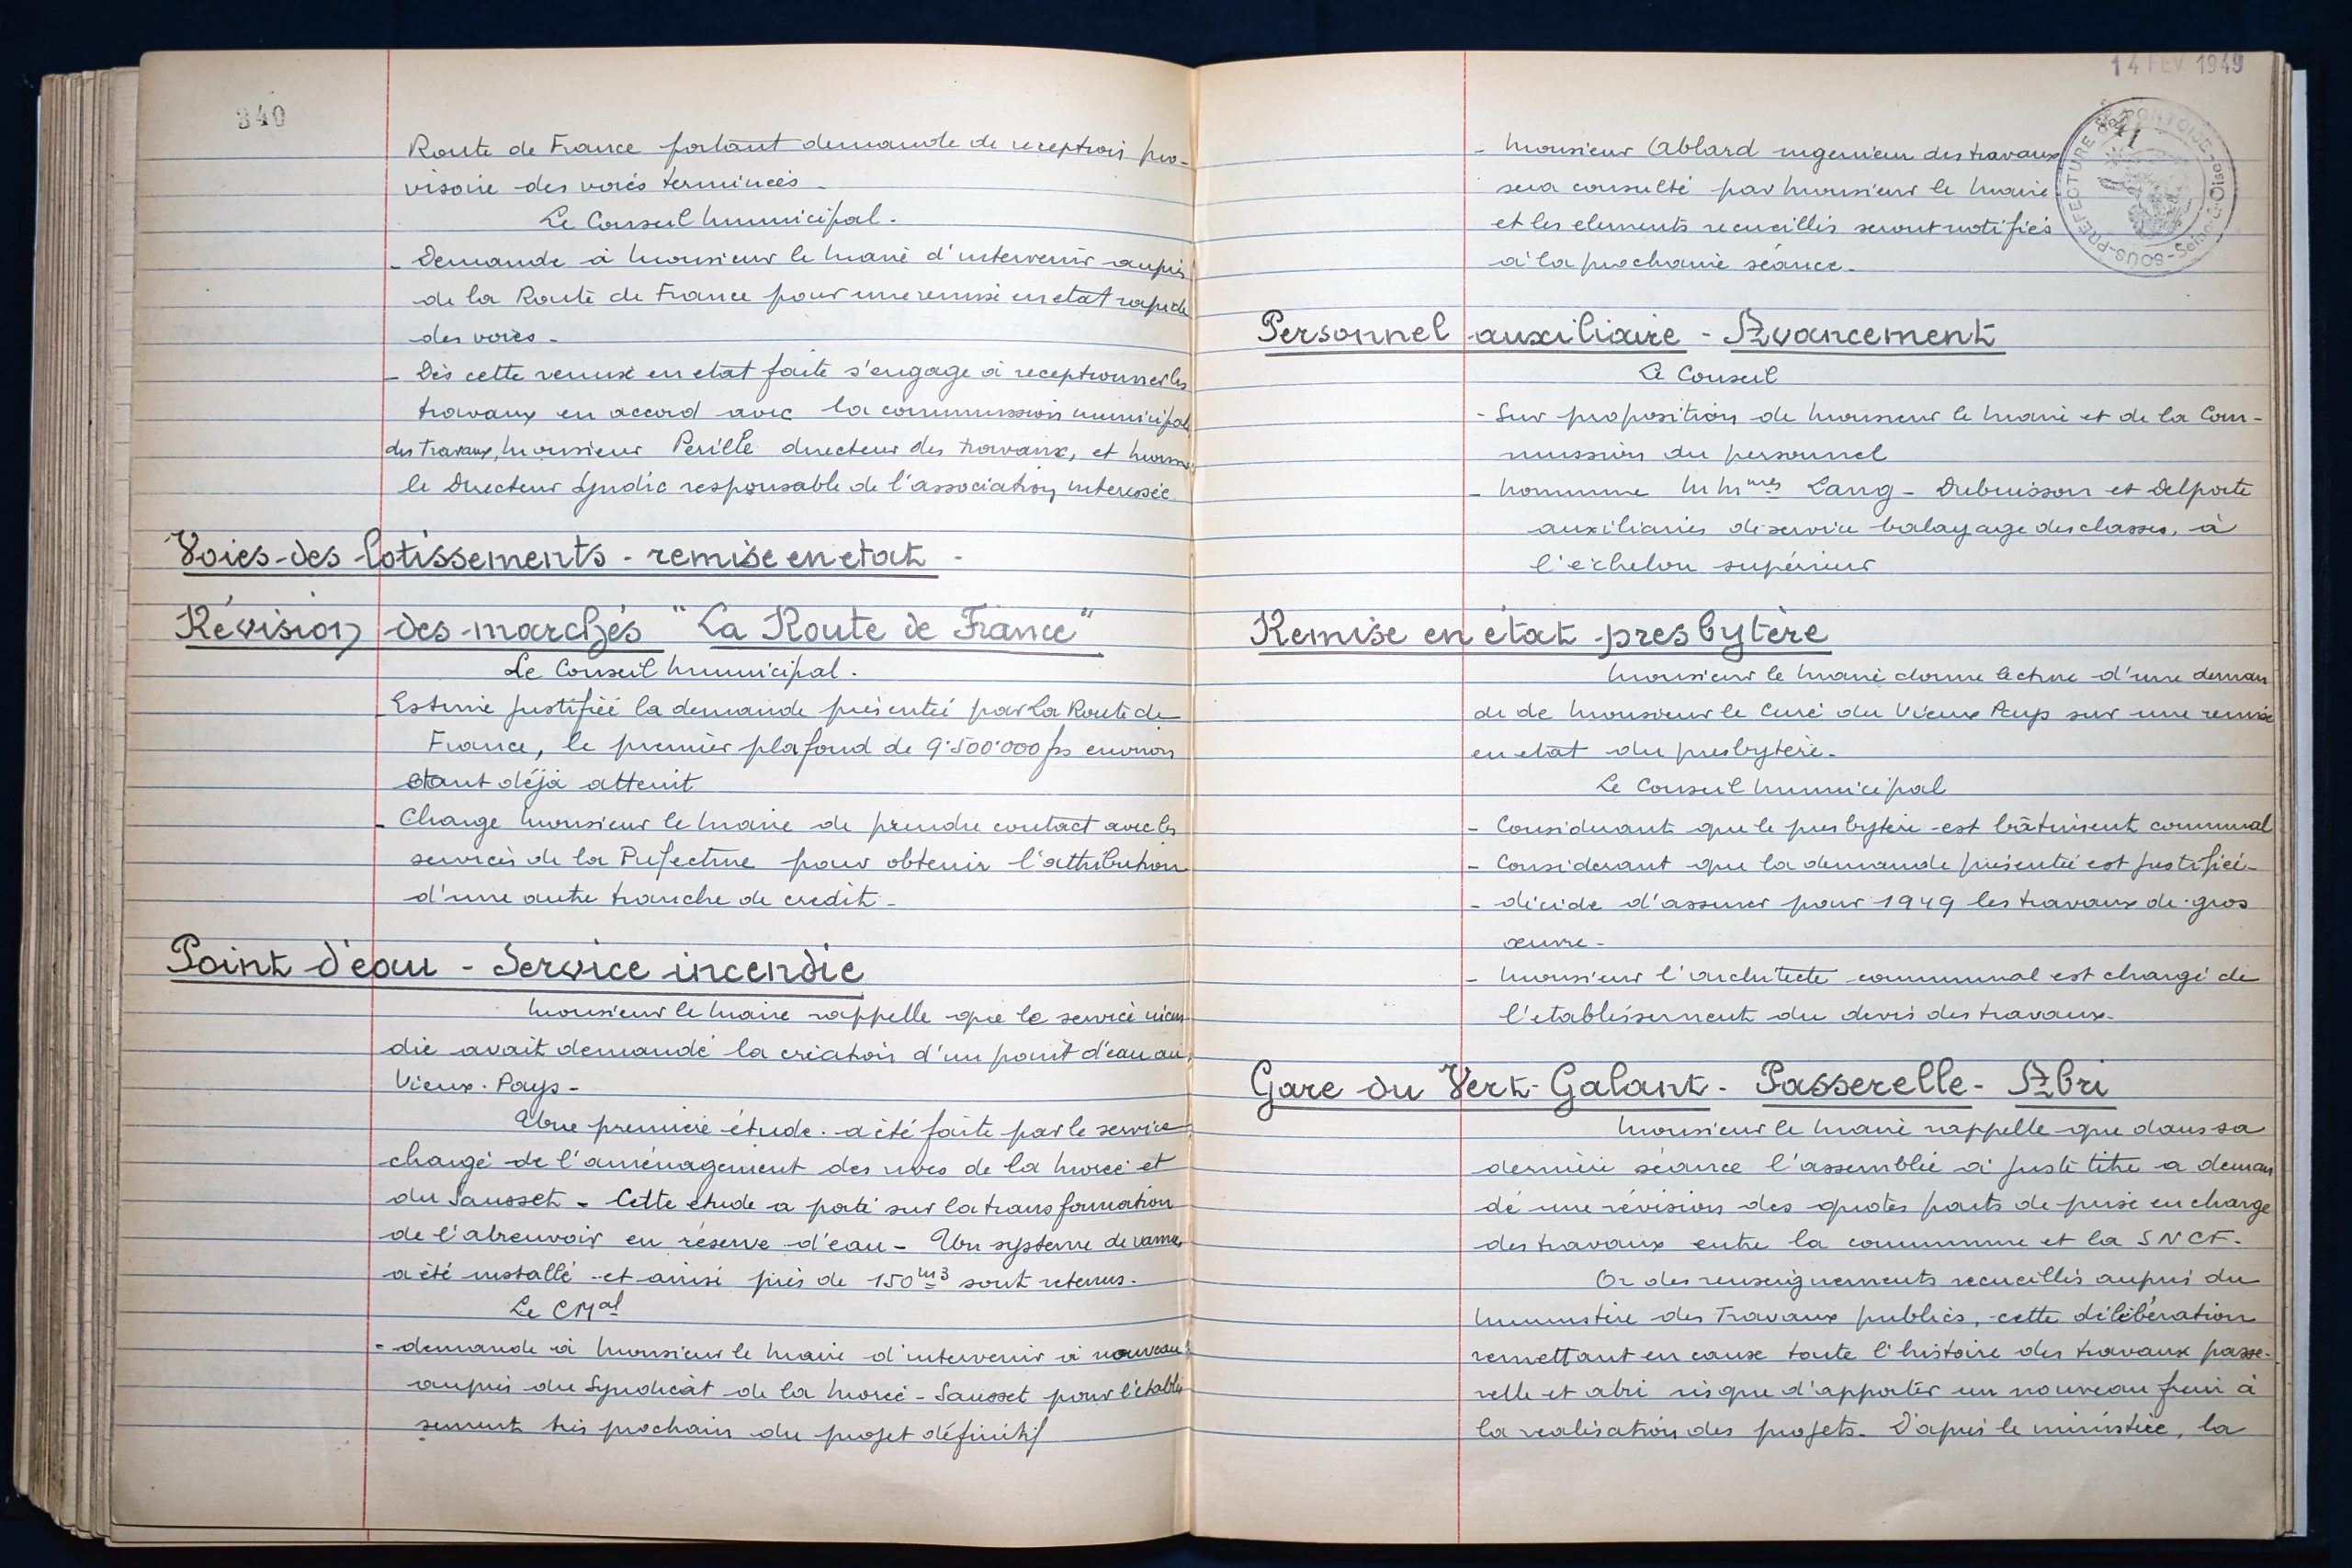 340
Route de France portant demande de reception pro-
visoire des voies terminées -
Le Conseil Municipal.
- Demande à Monsieur le Maire d'intervenir auprès
de la Route de France pour une remise en etat rapide
des voies -
- Dès cette remise en etat faite s'engage à receptionner les
travaux en accord avec la commission municipale
des Travaux, Monsieur Perille directeur des travaux, et Monsieur
le Directeur Syndic responsable de l'association interessée
Voies des lotissements - remise en etat -
Révision des marchés "La Route de France"
Le Conseil Municipal.
- Estime justifiée la demande présentée par La Route de
France, le premier plafond de 9.500.000 frs environ
étant déjà atteint
- Charge Monsieur le Maire de prendre contact avec les
services de la Prefecture pour obtenir l'attribution
d'une autre tranche de credit -
Point d'eau - Service incendie
Monsieur le Maire rappelle que le service incen
die avait demandé la création d'un point d'eau au
Vieux-Pays -
Une première étude a été faite par le service
chargé de l'aménagement des rives de la Morée et
du Sausset - Cette étude a porté sur la transformation
de l'abreuvoir en réserve d'eau - Un systeme de vannes
a été installé et ainsi près de 150 m3 sont retenus.
Le CMal
- demande à Monsieur le Maire d'intervenir à nouveau
auprès du Syndicat de la Morée - Sausset pour l'établis
sement très prochain du projet définitif
14 FEV 1949
SOUS-PREFECTURE de PONTOISE Seine-&-Oise
41
- Monsieur Cablard ingenieur des travaux
sera consulté par Monsieur le Maire
et les elements recueillis seront notifiés
à la prochaine séance -
Personnel auxiliaire - Avancement
Le Conseil
- Sur proposition de Monsieur le Maire et de la Com-
mission du personnel
- nomme MMmes Lang - Dubuisson et Delporte
auxiliaires de service balayage des classes, à
l'échelon supérieur
Remise en état presbytère
Monsieur le Maire donne lecture d'une deman
de de Monsieur le Curé du Vieux Pays sur une remise
en etat du presbytère -
Le Conseil Municipal
- Considerant que le presbytère est bâtiment communal
- Considerant que la demande présentée est justifiée -
- décide d'assurer pour 1949 les travaux de gros
œuvre -
- Monsieur l'architecte communal est chargé de
l'etablissement du devis des travaux -
Gare du Vert-Galant - Passerelle - Abri
Monsieur le Maire rappelle que dans sa
dernière séance l'assemblée à juste titre a deman
dé une révision des quotes parts de prise en charge
des travaux entre la commune et la SNCF.
Or des renseignements recueillis auprès du
Ministère des Travaux publics, cette délibération
remettant en cause toute l'histoire des travaux passe-
relle et abri risque d'apporter un nouveau frein à
la realisation des projets. D'après le ministère, la